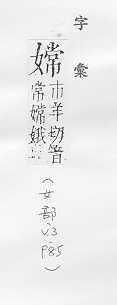 字彙
嫦
市羊切音
常嫦娥
(女部 V3 P85)